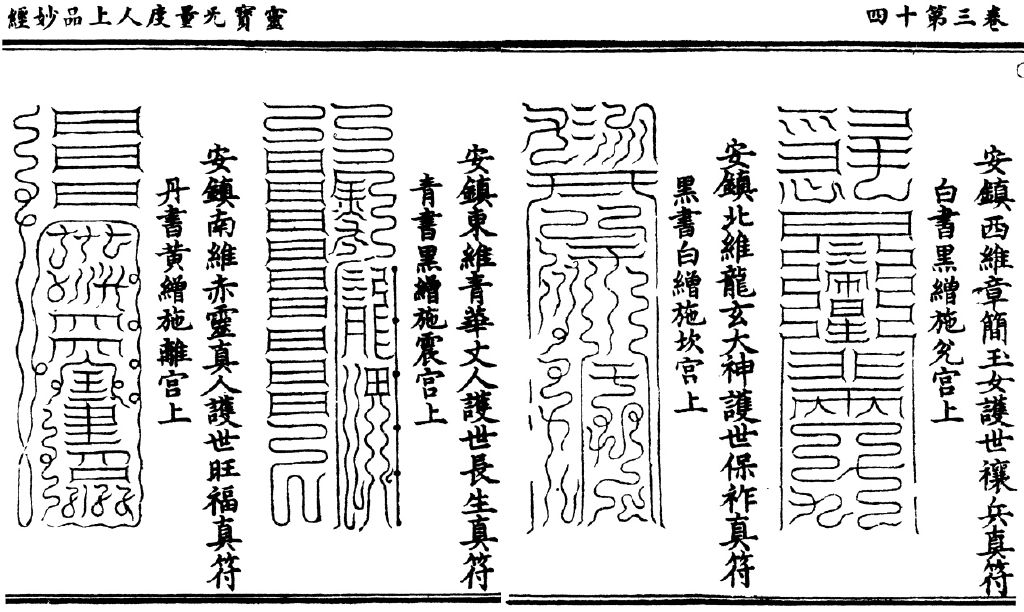 卷三第十四
安鎮西維章簡玉女護世禳兵真符
白書黑繒施兊宫上
安鎮北維龍玄大神護世保祚真符
黑書白繒施坎宫上
安鎮東維青華丈人護世長生真符
青書黑繒施震宫上
安鎮南維赤靈真人護世旺福真符
丹書黄繒施離宫上
靈寳旡量度人上品妙經